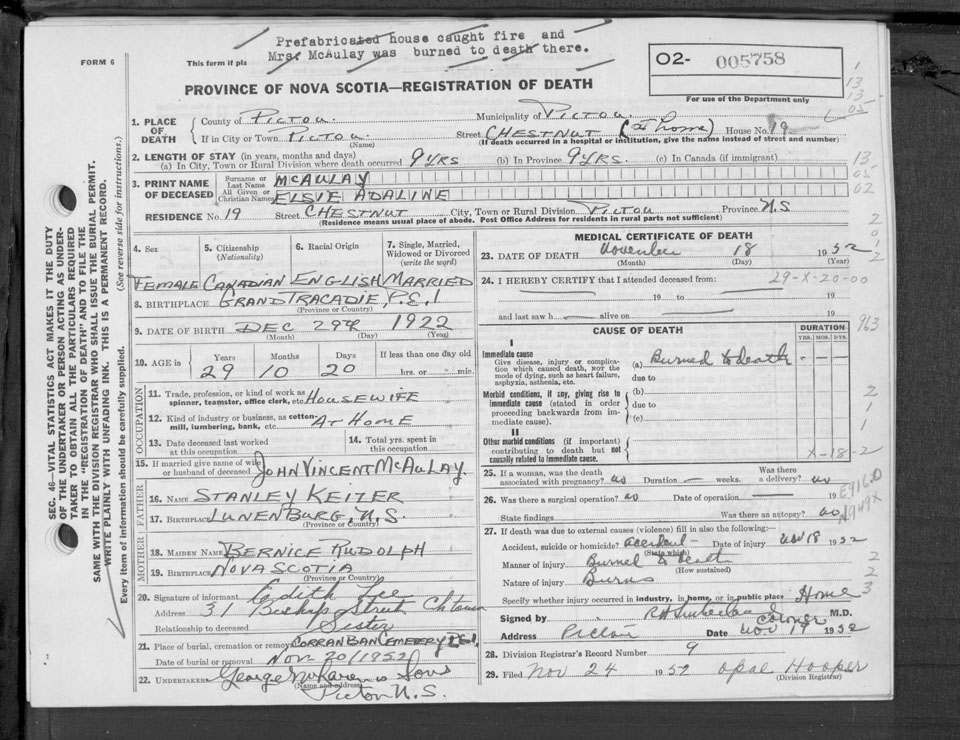 Prefabricated house caught fire and
Mrs. McAulay was burned to death there.
FORM 6
This form if pla
O2- 005758
For use of the Department only
PROVINCE OF NOVA SCOTIA—REGISTRATION OF DEATH
1. PLACE OF DEATH
County of Pictou. Municipality of Pictou.
If in City or Town Pictou. (Name) Street CHESTNUT (at home) House No. 19
(If death occurred in a hospital or institution, give the name instead of street and number)
2. LENGTH OF STAY (in years, months and days)
(a) In City, Town or Rural Division where death occurred 9 YRS (b) In Province 9 YRS. (c) In Canada (if immigrant)
3. PRINT NAME OF DECEASED
Surname or Last Name MCAULAY
All Given or Christian Names ELSIE ADALINE
RESIDENCE No. 19 Street CHESTNUT City, Town or Rural Division PICTOU Province N.S
(Residence means usual place of abode. Post Office Address for residents in rural parts not sufficient)
4. Sex
FEMALE
5. Citizenship (Nationality)
CANADIAN
6. Racial Origin
ENGLISH
7. Single, Married, Widowed or Divorced (write the word)
MARRIED
8. BIRTHPLACE GRAND TRACADIE, P.E.I
(Province or Country)
9. DATE OF BIRTH DEC 29th 1922
(Month) (Day) (Year)
10. AGE in Years Months Days If less than one day old
29 10 20 hrs. or min.
OCCUPATION
11. Trade, profession, or kind of work as spinner, teamster, office clerk, etc. HOUSEWIFE
12. Kind of industry or business, as cotton-mill, lumbering, bank, etc. AT HOME
13. Date deceased last worked at this occupation
14. Total yrs. spent in this occupation
15. If married give name of wife or husband of deceased JOHN VINCENT MCAULAY
FATHER
16. NAME STANLEY KEIZER
17. BIRTHPLACE LUNENBURG, N.S.
(Province or Country)
MOTHER
18. MAIDEN NAME BERNICE RUDOLPH
19. BIRTHPLACE NOVA SCOTIA
(Province or Country)
20. Signature of informant Edith Lee
Address 31 Bishop Street Ch town
Relationship to deceased Sister
21. Place of burial, cremation or removal CORRAN BAN CEMETERY P.E.I.
Date of burial or removal Nov 20/1952
22. UNDERTAKER George & Sons
(Name and address)
Pictou N.S.
MEDICAL CERTIFICATE OF DEATH
23. DATE OF DEATH November 18 1952
(Month) (Day) (Year)
24. I HEREBY CERTIFY that I attended deceased from: 29-X-20-00
19 to 19
and last saw h alive on 19
CAUSE OF DEATH
DURATION
YRS. MOS. DYS.
I
Immediate cause
Give disease, injury or complication which caused death, NOT the mode of dying, such as heart failure, asphyxia, asthenia, etc.
(a) Burned to death
due to
Morbid conditions, if any, giving rise to immediate cause (stated in order proceeding backwards from immediate cause).
(b)
due to
(c)
II
Other morbid conditions (if important) contributing to death but not causally related to immediate cause.
X-18-2
25. If a woman, was the death associated with pregnancy? no Duration — weeks. Was there a delivery? no
26. Was there a surgical operation? no Date of operation 19
State findings Was there an autopsy? no
27. If death was due to external causes (violence) fill in also the following:—
Accident, suicide or homicide? accident (State which) Date of injury Nov 18 1952
Manner of injury Burned to death
(How sustained)
Nature of injury Burns
Specify whether injury occurred in industry, in home, or in public place Home
Signed by M.D.
coroner
Address Pictou Date Nov 19 1952
28. Division Registrar's Record Number 9
29. Filed Nov 24 1952 Opal Hooper
(Division Registrar)
SEC. 46—VITAL STATISTICS ACT MAKES IT THE DUTY
OF THE UNDERTAKER OR PERSON ACTING AS UNDER-
TAKER TO OBTAIN ALL THE PARTICULARS REQUIRED
IN THE "REGISTRATION OF DEATH" AND TO FILE THE
SAME WITH THE DIVISION REGISTRAR WHO SHALL ISSUE THE BURIAL PERMIT.
WRITE PLAINLY WITH UNFADING INK. THIS IS A PERMANENT RECORD.
Every item of information should be carefully supplied.
(See reverse side for instructions.)
1
13
13
05
13
05
02
2
0
1
2
963
2
1
E916.0
N949X
2
2
3